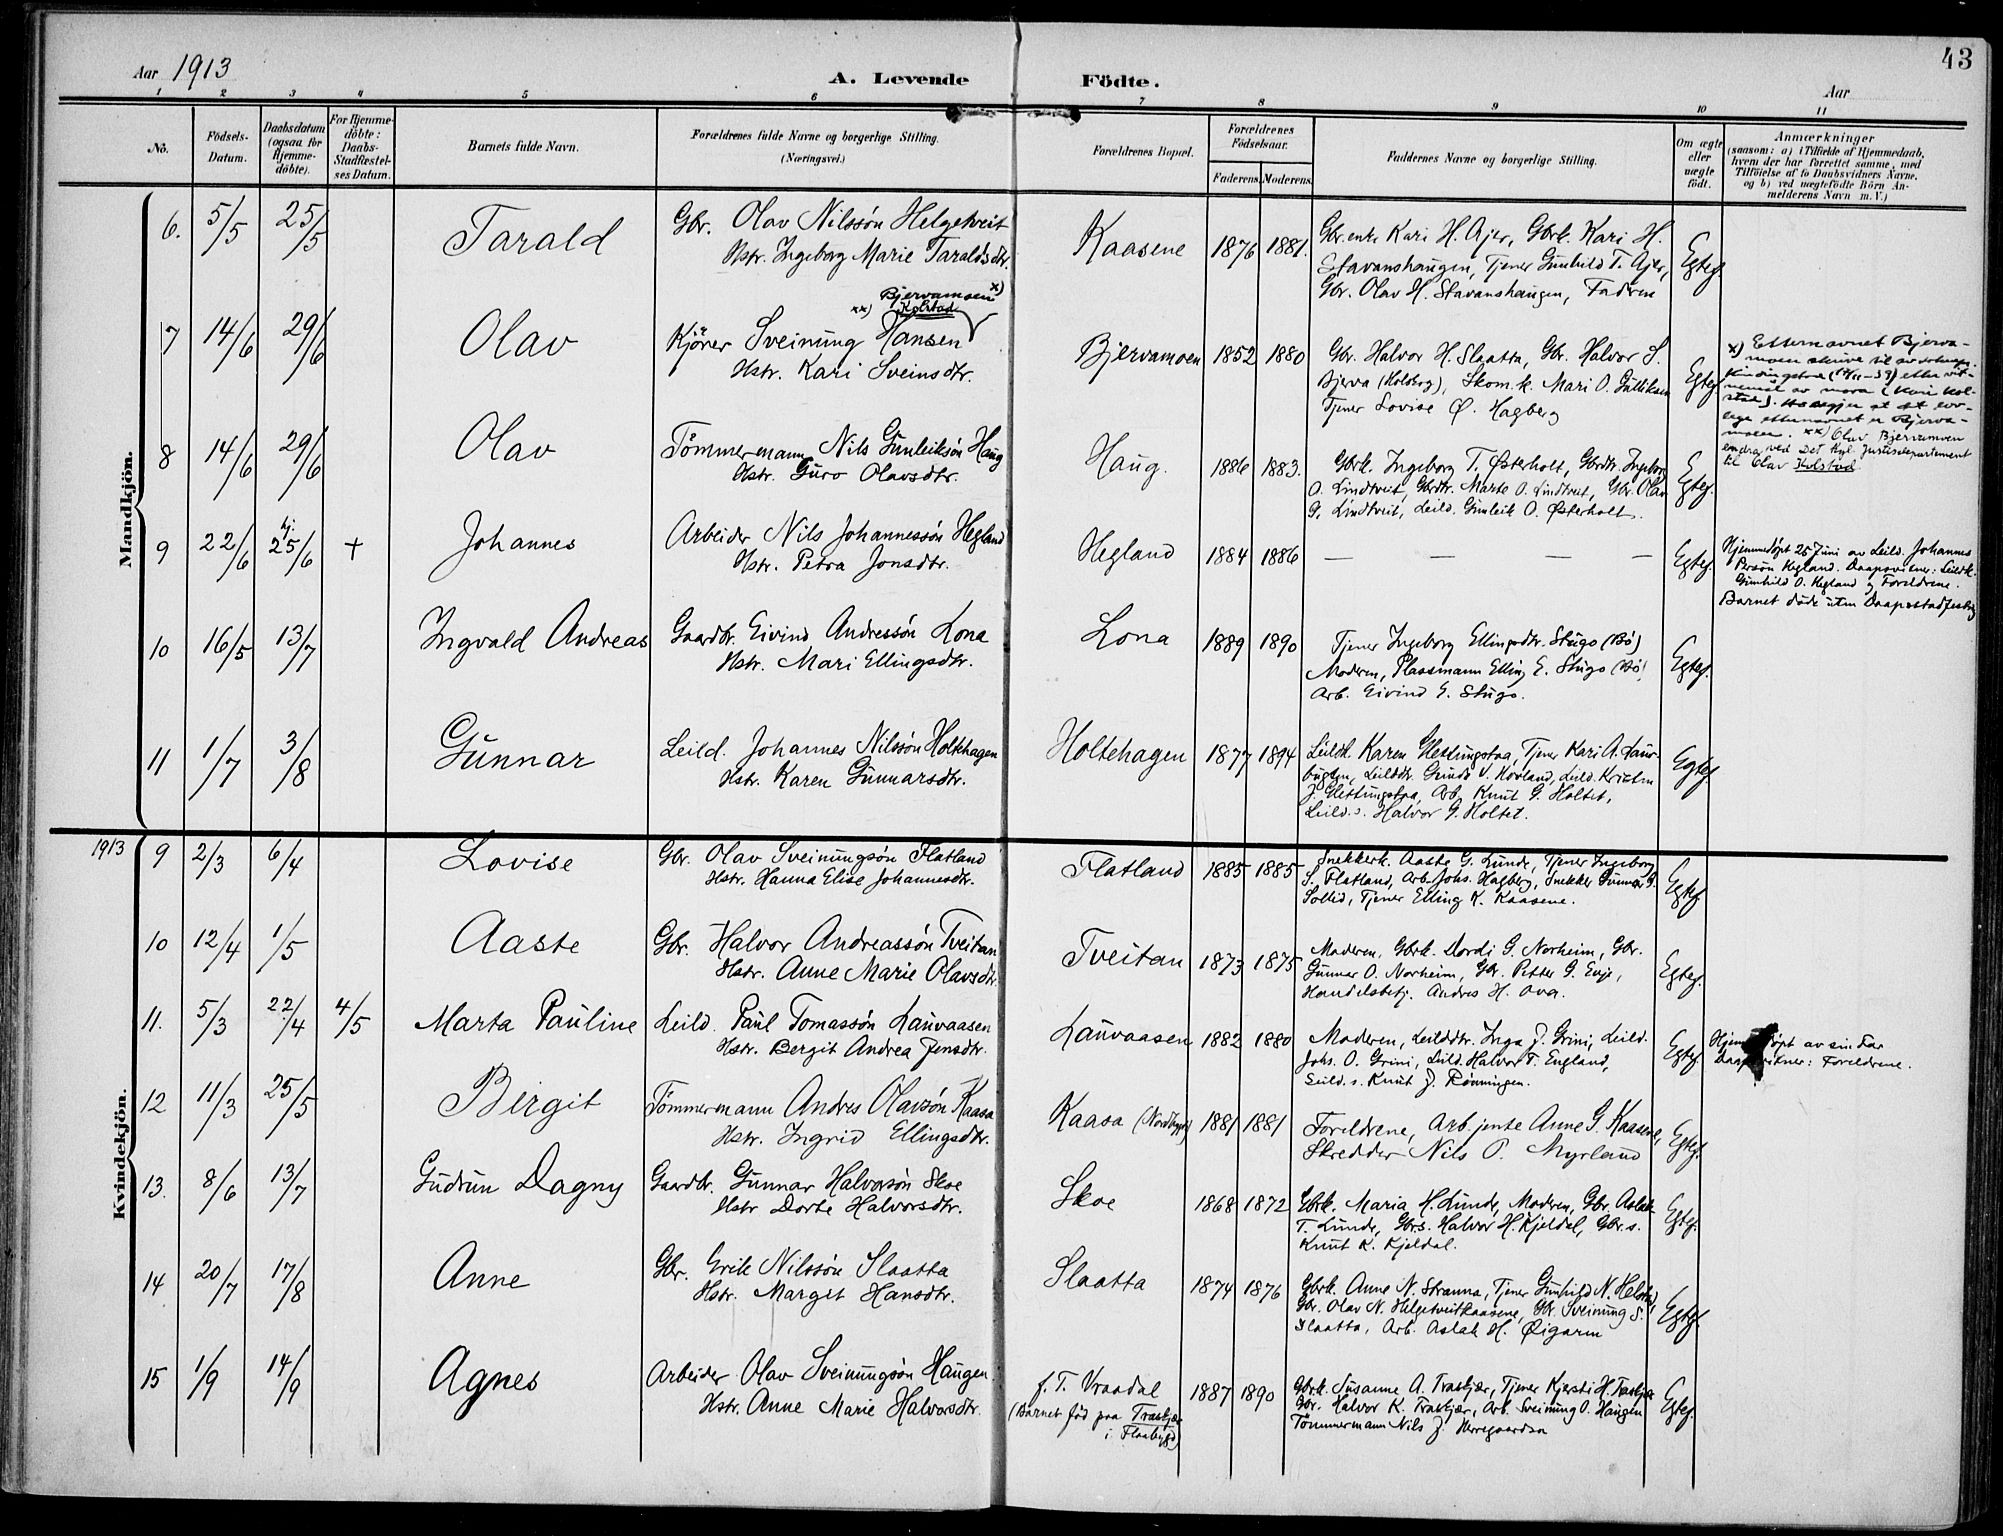 43
Aar 1913
A. Levende Födte.
Aar
1 2 3 4 5 6 7 8 9 10 11
No.
Födsels-
Datum.
Daabsdatum
(ogsaa for
Hjemme-
döbte).
For Hjemme-
döbte:
Daabs-
Stadfæstel-
ses Datum.
Barnets fulde Navn.
Forældrenes fulde Navne og borgerlige Stilling.
(Næringsvei.)
Forældrenes Bopæl.
Forældrenes
Födselsaar.
Faderens. Moderens.
Faddernes Navne og borgerlige Stilling.
Om ægte
eller
uægte
født.
Anmærkninger
(saasom: a) i Tilfælde af Hjemmedaab,
hvem der har forrettet samme, med
Tilföielse af to Daabsvidners Navne.
og b) ved uægtefödte Börn An-
melderens Navn m.V.)
Mandkjön.
6. 5/5 25/5 Tarald Gbr. Olav Nilssön Helgetveit
Hstr. Ingeborg Marie Taraldsdtr.
Kaasene 1876 1881. Gbr.enke Kari H. Ajer, Gbrk. Kari H.
Stavanshaugen, Tjener Gunhild T. Ajer,
Gbr. Olav H. Stavanshaugen, Fadren
Egtef.
Bjervamoen x)
xx) Kolstad
7 14/6 29/6 Olav Kjörer Sveinung Hansen
Hstr. Kari Sveinsdtr.
Bjervamoen 1852 1880 Gbr. Halvor H. Slaatta, Gbr. Halvor S.
Bjerva (Holsberg), Skom.k. Mari O. Gulliksen
Tjener Lovise Ø. Hagberg
Egtef.
x) Etternavnet Bjerva-
moen skrive til av
etter vit-
nemål av mora (Kari Kol-
stad). Ho segjer at det lov-
lege etternavnet er Bjerva-
moen. xx) Olav Bjervamoen
endra ved Det Kgl. Justisdepartement
til Olav Kolstad.
8 14/6 29/6 Olav Tömmermann Nils Gunleiksön Haug
Hstr. Guro Olavsdtr.
Haug. 1886 1883. Gbrk. Ingeborg T. Østerholt, Gbrdtr. Ingeborg
O. Lindtveit, Gbrdtr. Marte O. Lindtveit, Gbr. Olav
G. Lindtveit, Leild. Gunleik O. Østerholt.
Egtef.
9 22/6 hj. 25/6 + Johannes Arbeider Nils Johannessön Hegland
Hstr. Petra Jonsdtr.
Hegland 1884 1886 — — — — Egtef.
Hjemmedöpt 25 Juni av Leild. Johannes
Persön Hegland. Daapsvitner: Leildk.
Gunhild O. Hegland og Foreldrene.
Barnet döde uten Daapsstadfesting
10 16/5 13/7 Ingvald Andreas Gaardbr. Eivind Andressön Lona
Hstr. Mari Ellingsdtr.
Lona 1889 1890 Tjener Ingeborg Ellingsdtr. Stugo (Bö)
Moderen, Plassmann Elling E. Stugo (Bö)
Arb. Eivind E. Stugo.
Egtef.
11 1/7 3/8 Gunnar Leild. Johannes Nilssön Holtehagen
Hstr. Karen Gunnarsdtr.
Holtehagen 1877 1894 Leildk. Karen Glettingstaa, Tjener Kari A. Laur-
bugten, Leilddtr. Gunda V. Hovland, Leild. Kristen
J. Glettingstaa, Arb. Knut G. Holtet,
Leild.s. Halvor G. Holtet.
Egtef.
Kvindekjön.
1913 9 2/3 6/4 Lovise Gbr. Olav Sveinungsön Flatland
Hstr. Hanna Elise Johannesdtr.
Flatland 1885 1885 Snekkerk. Aaste G. Lunde, Tjener Ingeborg
S. Flatland, Arb. Johs. Hagberg, Snekker Gunnar G.
Sollid, Tjener Elling K. Kaasene.
Egtef.
10 12/4 1/5 Aaste Gbr. Halvor Andreassön Tveitan
Hstr. Anne Marie Olavsdtr.
Tveitan 1873 1875 Moderen, Gbrk. Dordi G. Norheim, Gbr.
Gunnar O. Norheim, Gbr. Petter G. Eeije,
Handelsbetj. Andres H. Ova.
Egtef.
11. 5/3 22/4 4/5 Marta Pauline Leild. Paul Tomassön Lauvaasen
Hstr. Bergit Andrea Jensdtr.
Lauvaasen 1882 1880 Moderen, Leilddtr. Inga J. Grini, Leild.
Johs. O. Grini, Leild. Halvor T. England,
Leild.s. Knut J. Rönningen.
Egtef.
Hjemmedöpt av sin Far
Daapsvitner: Foreldrene.
12 11/3 25/5 Birgit Tömmermann Andres Olavsön Kaasa
Hstr. Ingrid Ellingsdtr.
Kaasa (Nordbygd) 1881 1881 Foreldrene, Arb.jente Anne G. Kaasene,
Skredder Nils P. Myrland
Egtef.
13. 8/6 13/7 Gudrun Dagny Gaardbr. Gunnar Halvorsön Skoe
Hstr Dorte Halvorsdtr.
Skoe 1868 1872 Gbrk. Maria H. Lunde, Moderen, Gbr. Aslak
T. Lunde, Gbrs. Halvor H. Kjeldal, Gbr.s.
Knut K. Kjeldal.
Egtef.
14 20/7 17/8 Anne Gbr. Erik Nilssön Slaatta
Hstr. Margit Hansdtr.
Slaatta 1874 1876 Gbrk. Anne N. Stranna, Tjener Gunhild N.
Gbr. Olav N. Helgetveitkaasene, Gbr. Sveinung S.
Slaatta, Arb. Aslak H. Øigarn
Egtef.
15 1/9 14/9 Agnes Arbeider Olav Sveinungsön Haugen
Hstr. Anne Marie Halvorsdtr.
f. T. Vraadal
(Barnet föd paa Traskjær
i Flaabygd)
1887 1890 Gbrk. Susanne A. Traskjær, Tjener Kjersti H. Traskjær
Gbr. Halvor K. Traskjær, Arb. Sveinung O. Haugen
Tömmermann Nils J. Herregaardsn
Egtef.